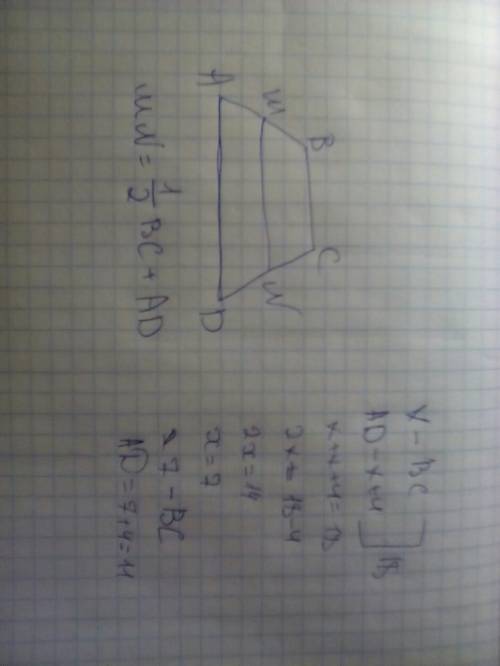 B C
m N
A D
MN = 1/2 BC + AD
x - BC
AD - x+4 ] 18
x+x+4=18
2x = 18-4
2x = 14
x = 7
7 - BC
AD = 7+4=11